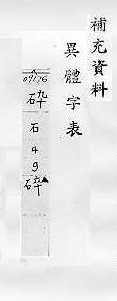 補充資料
異體字表
09176
砕
石
4
9
碎